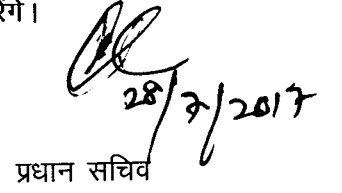 रेंगे।
28/7/2017
प्रधान सचिव